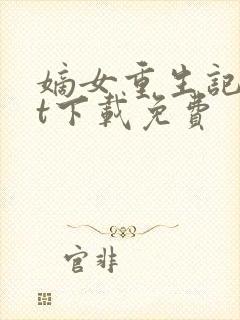 嫡女重生記
t下載免費
官非